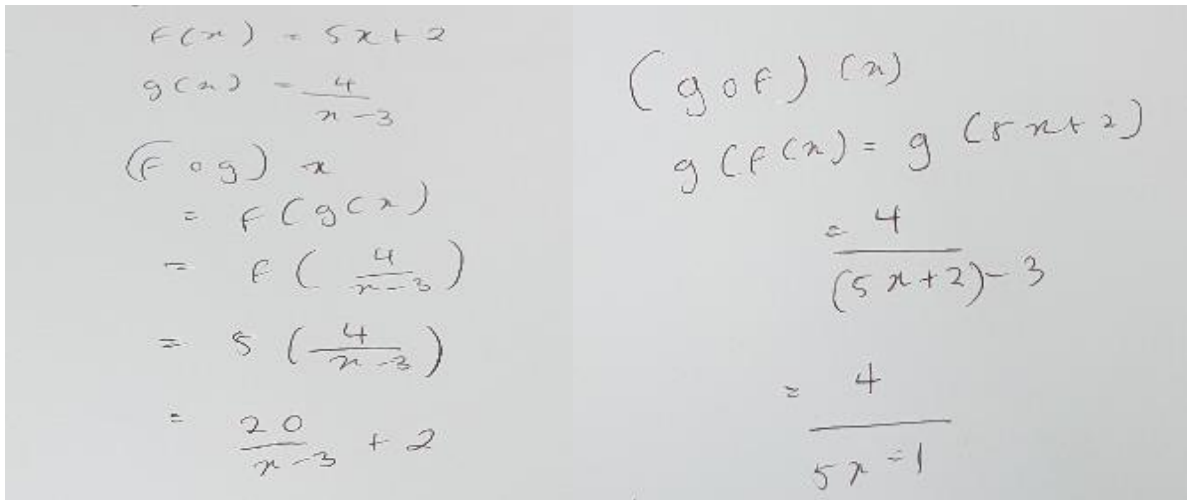 f(x) = 5x + 2
g(x) = 4/(x - 3)
(f o g) x
= f(g(x)
= f(4/(x - 3))
= 5(4/(x - 3))
= 20/(x - 3) + 2
(g o f)(x)
g(f(x) = g(5x + 2)
= 4/((5x + 2) - 3)
= 4/(5x - 1)